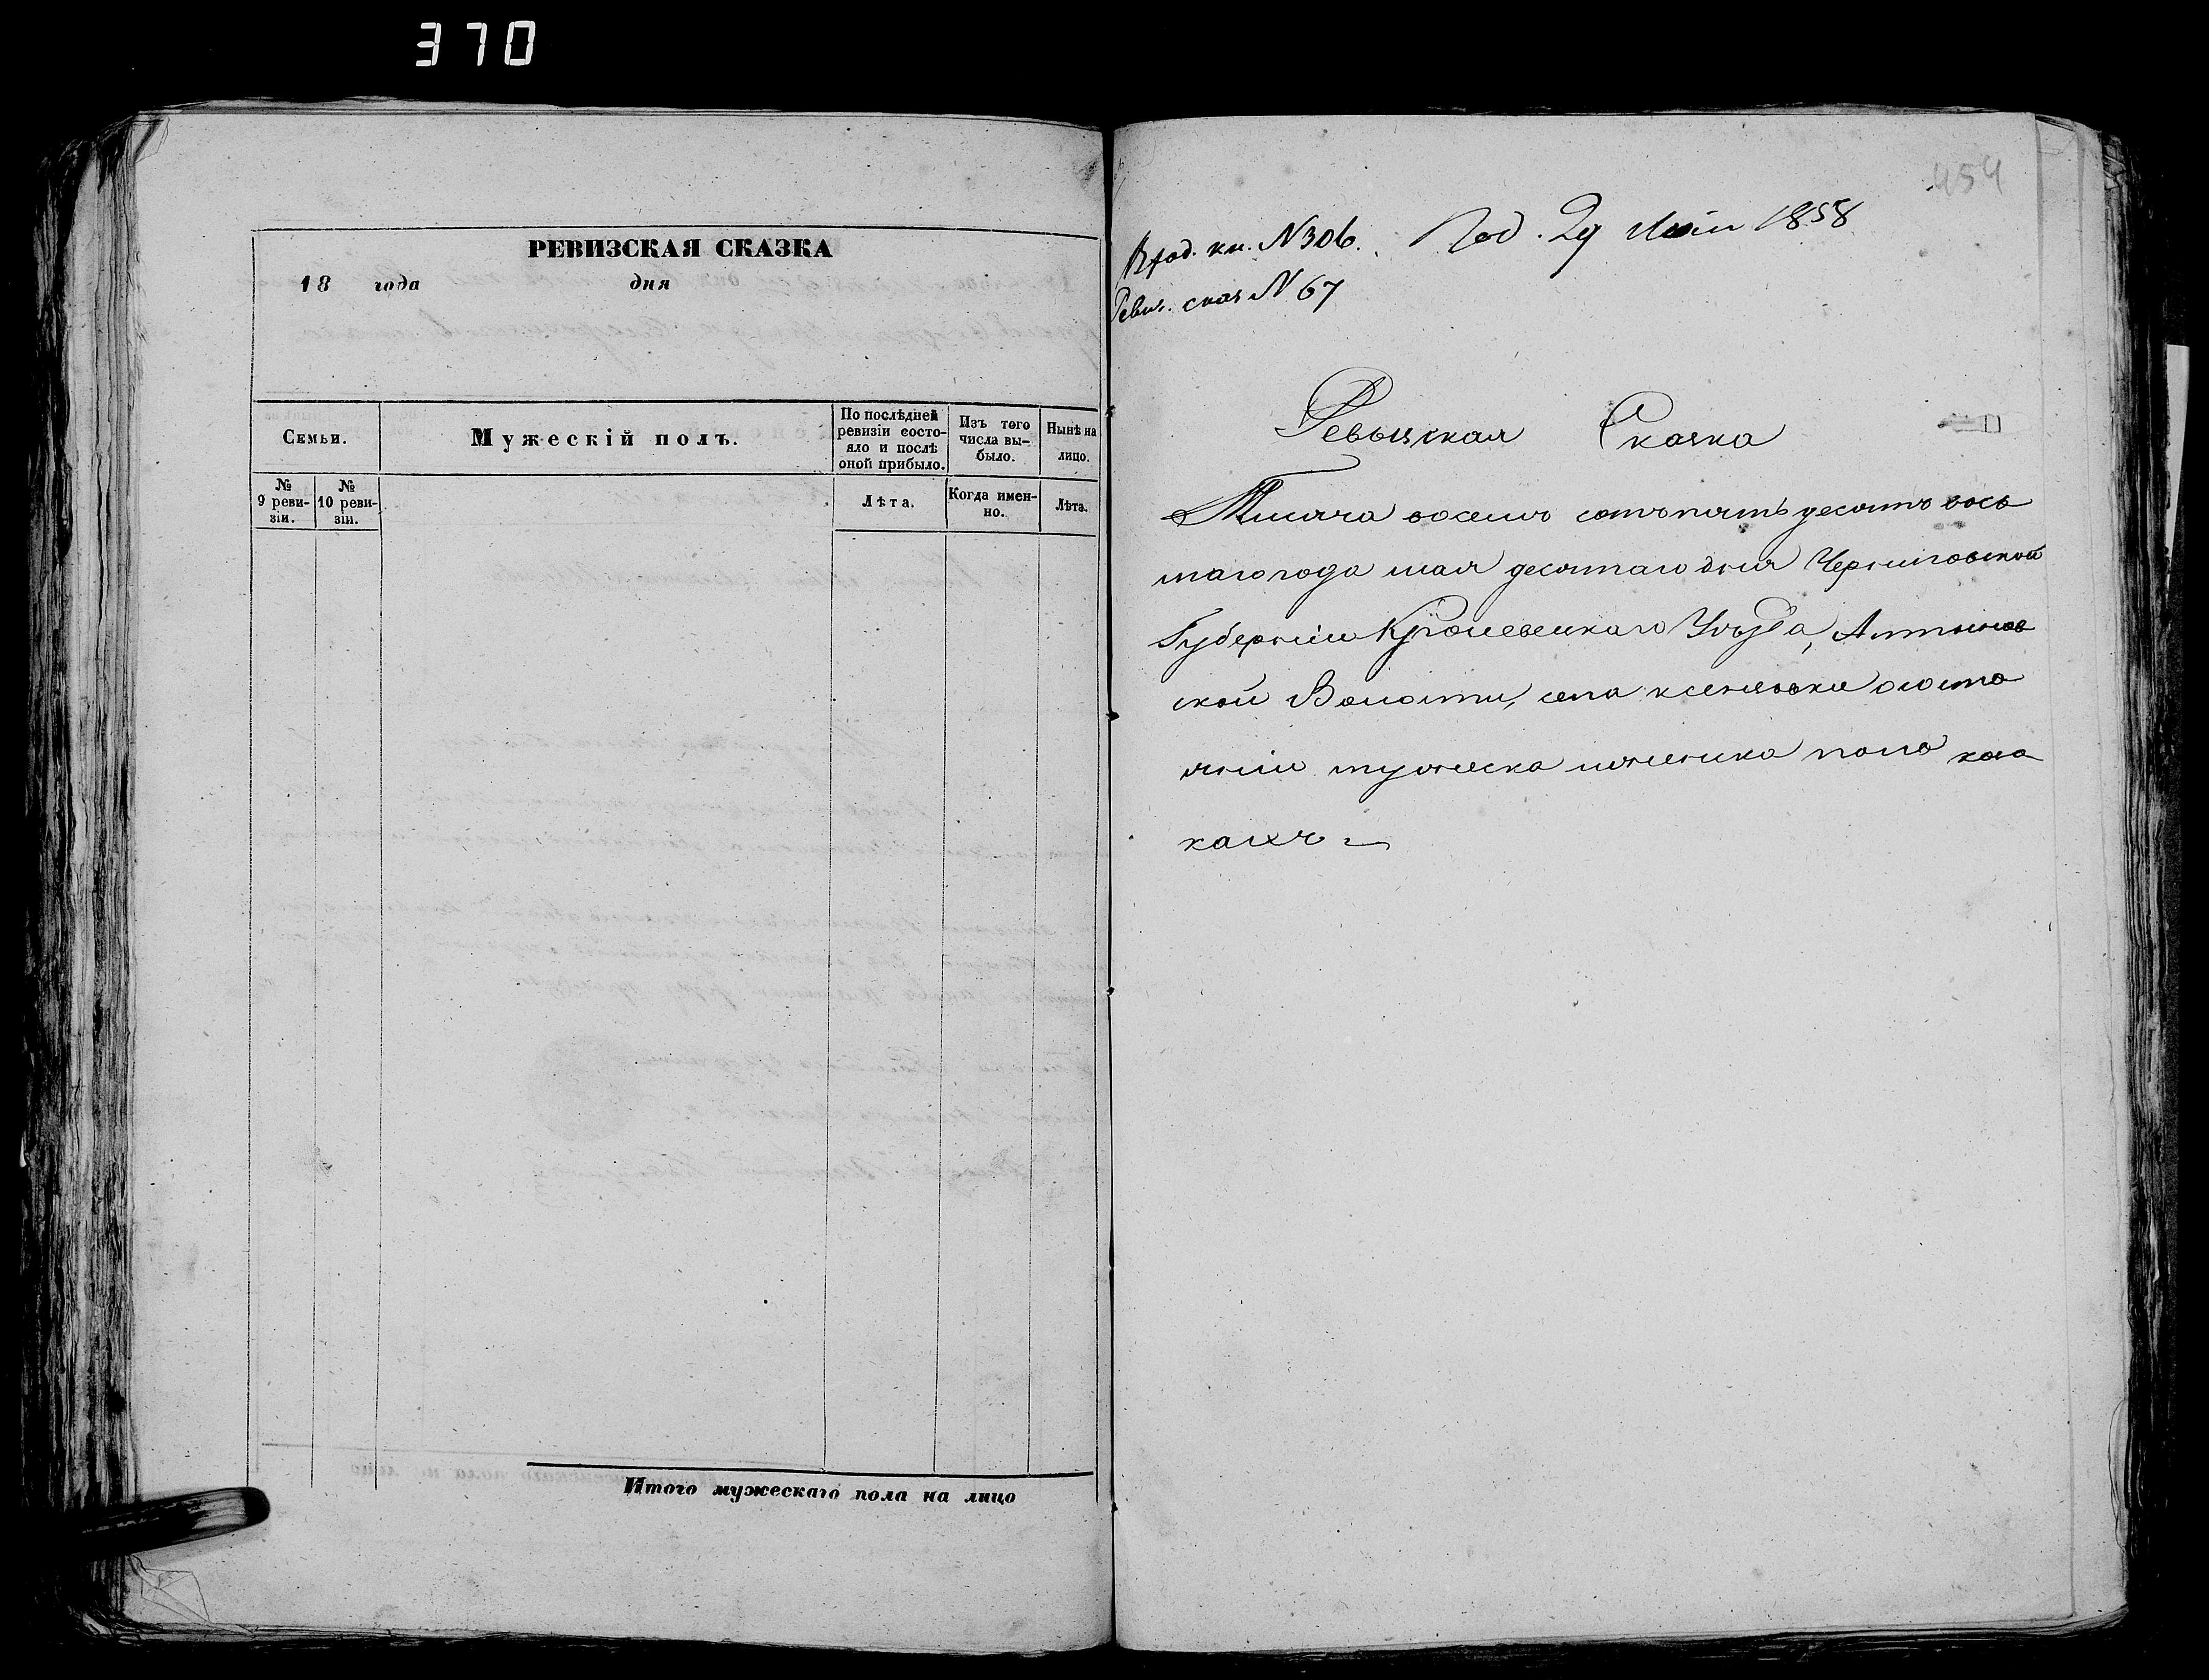 370
РЕВИЗСКАЯ СКАЗКА
18 года дня
Семьи.
Мужескій полъ.
По послѣдней ревизіи состояло и послѣ оной прибыло.
Изъ того числа выбыло.
Нынѣ на лицо.
№ 9 ревизіи.
№ 10 ревизіи.
Лѣта.
Когда именно.
Лѣта.
Итого мужескаго пола на лицо
454
Вход. кн. N306. Под. 29 Маія 1858
Ревиз. сказ N 67
Ревызская Сказка
Тисяча восемъ сотъ пятъ десятъ вось
маго года мая десятаго дня Черниговской
Губерніи Кролевецкаго Уѣзда,
ской Волости, села ксензовки осото
яніи мужеска иженска пола коза
кахъ